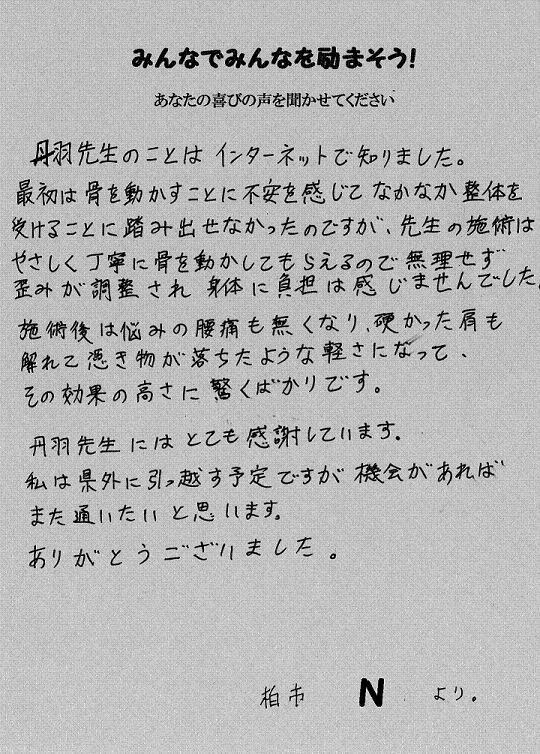 みんなでみんなを励まそう!
あなたの喜びの声を聞かせてください
丹羽先生のことは インターネットで知りました。
最初は骨を動かすことに不安を感じて なかなか整体を
受けることに踏み出せなかったのですが、先生の施術は
やさしく丁寧に骨を動かしてもらえるので 無理せず
歪みが調整され 身体に負担は感じませんでした。
施術後は悩みの腰痛も無くなり、硬かった肩も
解れて憑き物が落ちたような軽さになって、
その効果の高さに驚くばかりです。
丹羽先生にはとても感謝しています。
私は県外に引っ越す予定ですが機会があれば
また通いたいと思います。
ありがとうございました。
柏市 N より。